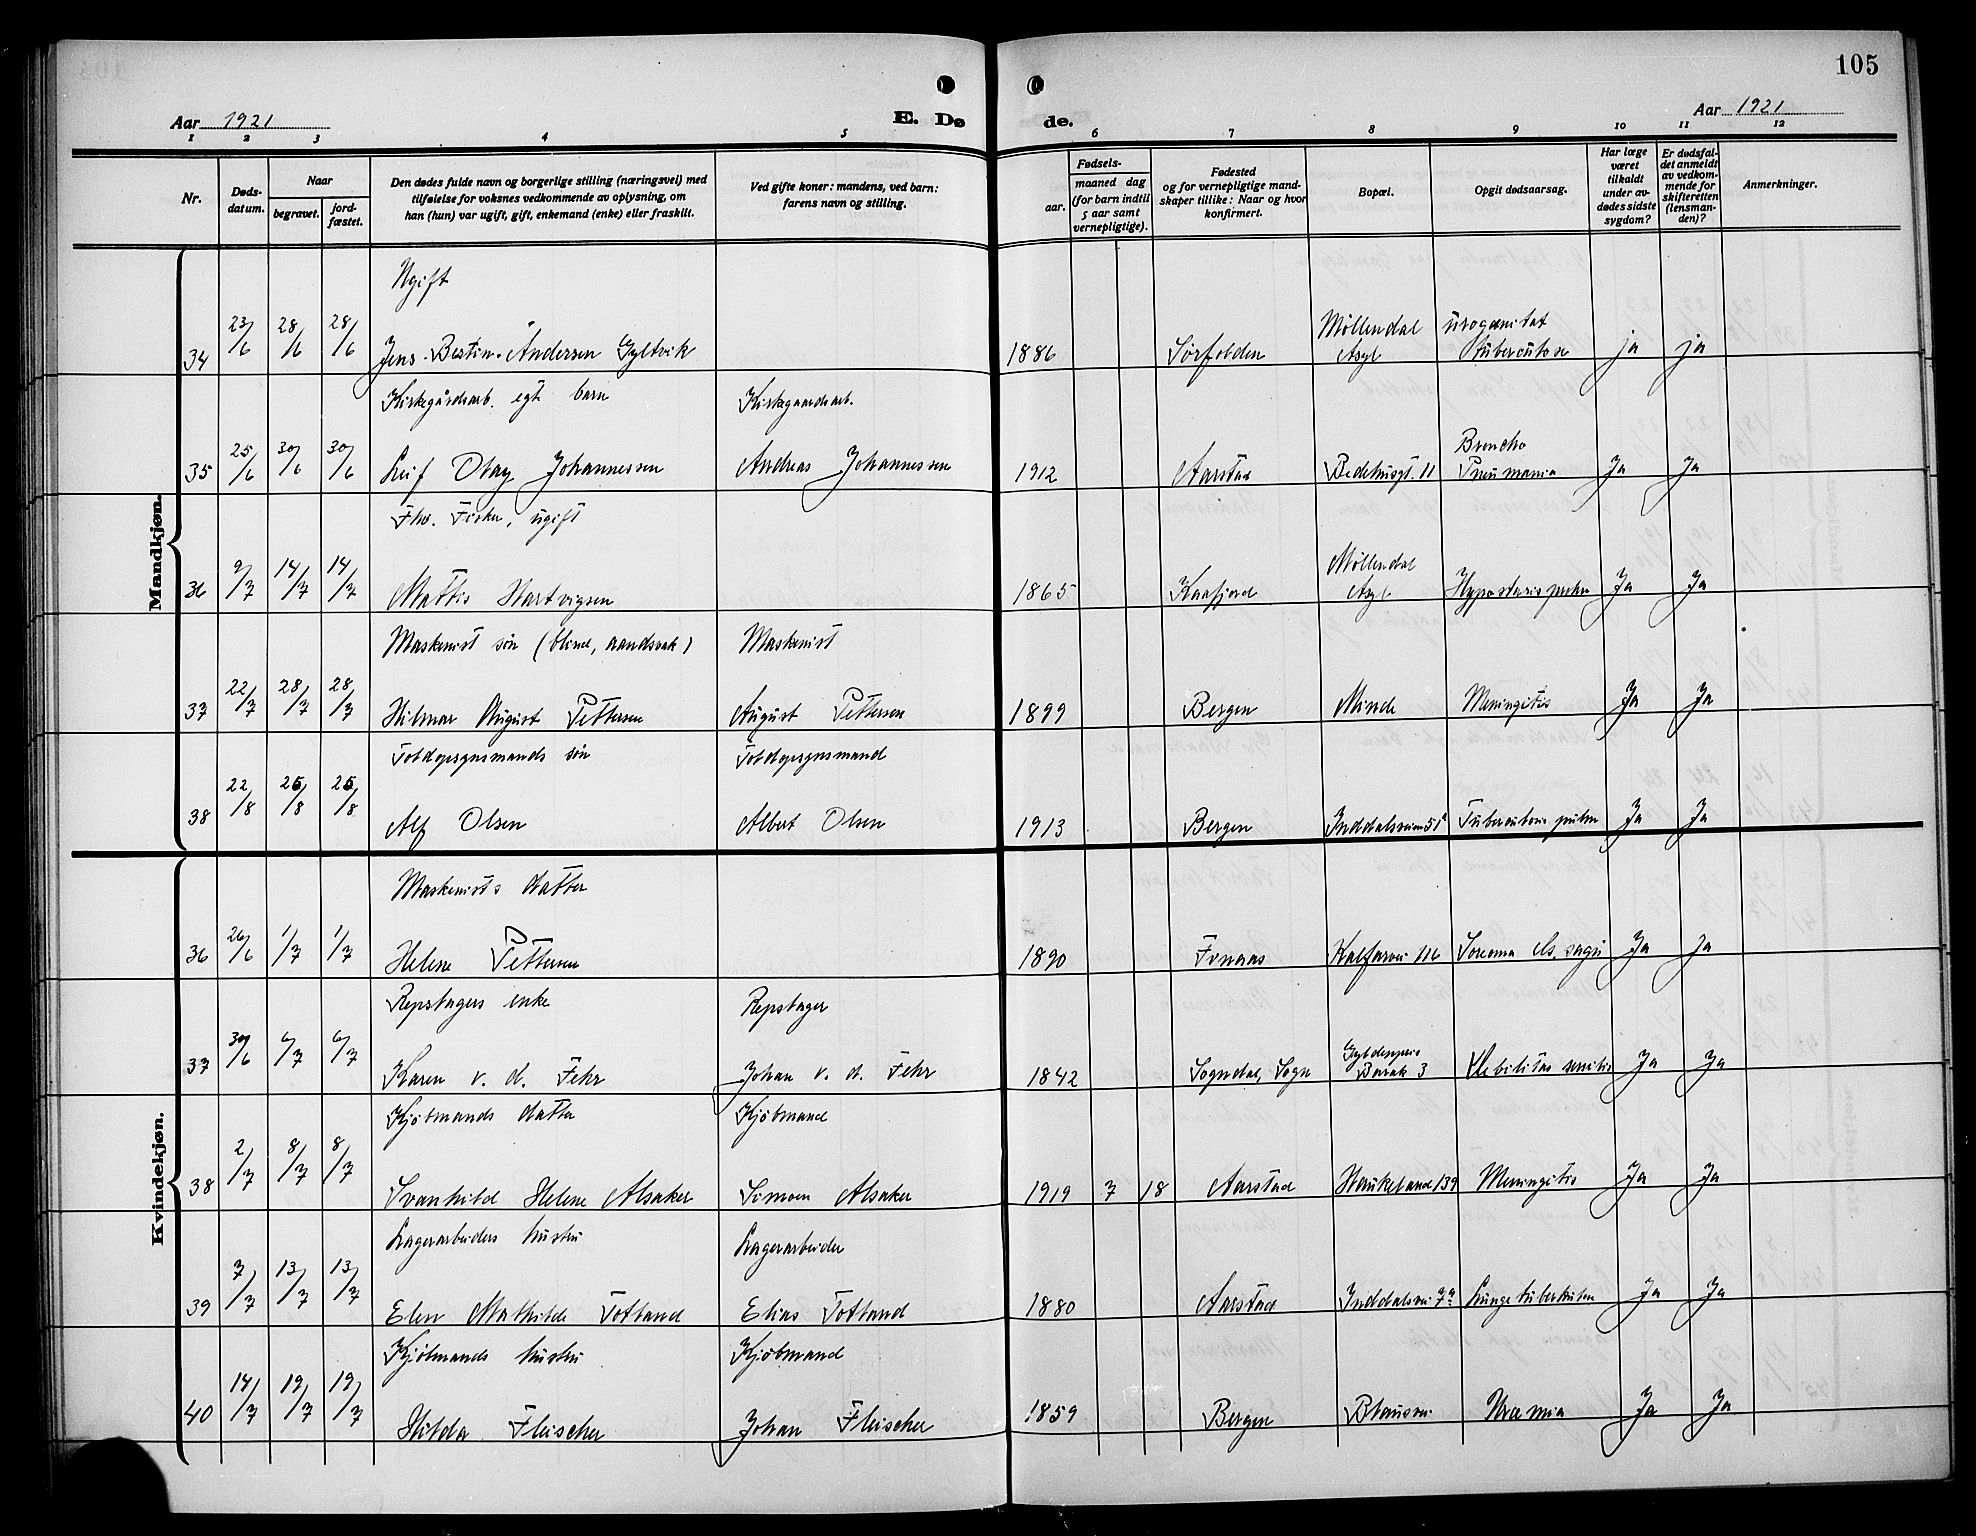 105
Aar 1921
E. Dø
de.
Aar 1921
1 2 3 4 5 6 7 8 9 10 11 12
Nr.
Døds-
datum.
Naar
begravet.
jord-
fæstet.
Den dødes fulde navn og borgerlige stilling (næringsvei) med
tilføielse for voksnes vedkommende av oplysning, om
han (hun) var ugift, gift, enkemand (enke) eller fraskilt.
Ved gifte koner: mandens, ved barn:
farens navn og stilling.
Fødsels-
aar.
maaned dag
(for barn indtil
5 aar samt
vernepligtige).
Fødested
og for vernepligtige mand-
skaper tillike: Naar og hvor
konfirmert.
Bopæl.
Opgit dødsaarsag.
Har læge
været
tilkaldt
under av-
dødes sidste
sygdom?
Er dødsfal-
det anmeldt
av vedkom-
mende for
skifteretten
(lensman-
den)?
Anmerkninger.
Mandkjøn.
Ugift
Møllendal
34 23/6 28/6 28/6 Jens Andersen Gyltvik 1886 Sørfolden Asyl ja ja
Kirkegårdsarb. egt barn Kirkegaardsarb.
Broncho
35 25/6 30/6 30/6 Leif Olay Johannessen Andreas Johannessen 1912 Aarstad Bedehusgt. 11 Pneumania Ja Ja
Fhv. Fisker, ugift
Møllendal
36 9/7 14/7 14/7 Mattis Hartvigsen 1865 Kaafjord Asyl Hypostasis pulm Ja Ja
Maskenist søn (blind, aandsvak) Maskenist
37 22/7 28/7 28/7 Hilmar August Pettersen August Pettersen 1899 Bergen Minde Meningitis Ja Ja
Toldopsynsmands søn Toldopsynsmand
38 22/8 /8 /8 Alf Olsen Albert Olsen 1913 Bergen Inddalsveien 51a Tuberculosis pulm Ja Ja
Kvindekjøn.
Maskenists datter
36 26/6 1/7 1/7 Helene Pettersen 1890 Kalfarvei 116 Ja Ja
Repslagers enke Repslager
Gyldenpris
37 30/6 6/7 6/7 Karen v. d. Fehr Johan v. d. Fehr 1842 Sogndal, Sogn Barak 3 Debilitas senilis Ja Ja
Kjøbmands datter Kjøbmand
38 2/7 8/7 8/7 Svanhild Helene Alsaker Simoen Alsaker 1919 7 18 Aarstad Haukeland 139 Meningitis Ja Ja
Lagerarbeiders hustru Lagerarbeider
39 7/7 13/7 13/7 Elen Mathilde Totland Elias Totland 1880 Aarstad Inddalsvei 7a Lungetuberkulose Ja Ja
Kjøbmands hustru Kjøbmand
40 14/7 19/7 19/7 Hilda Fleischer Johan Fleischer 1859 Bergen Uræmia Ja Ja